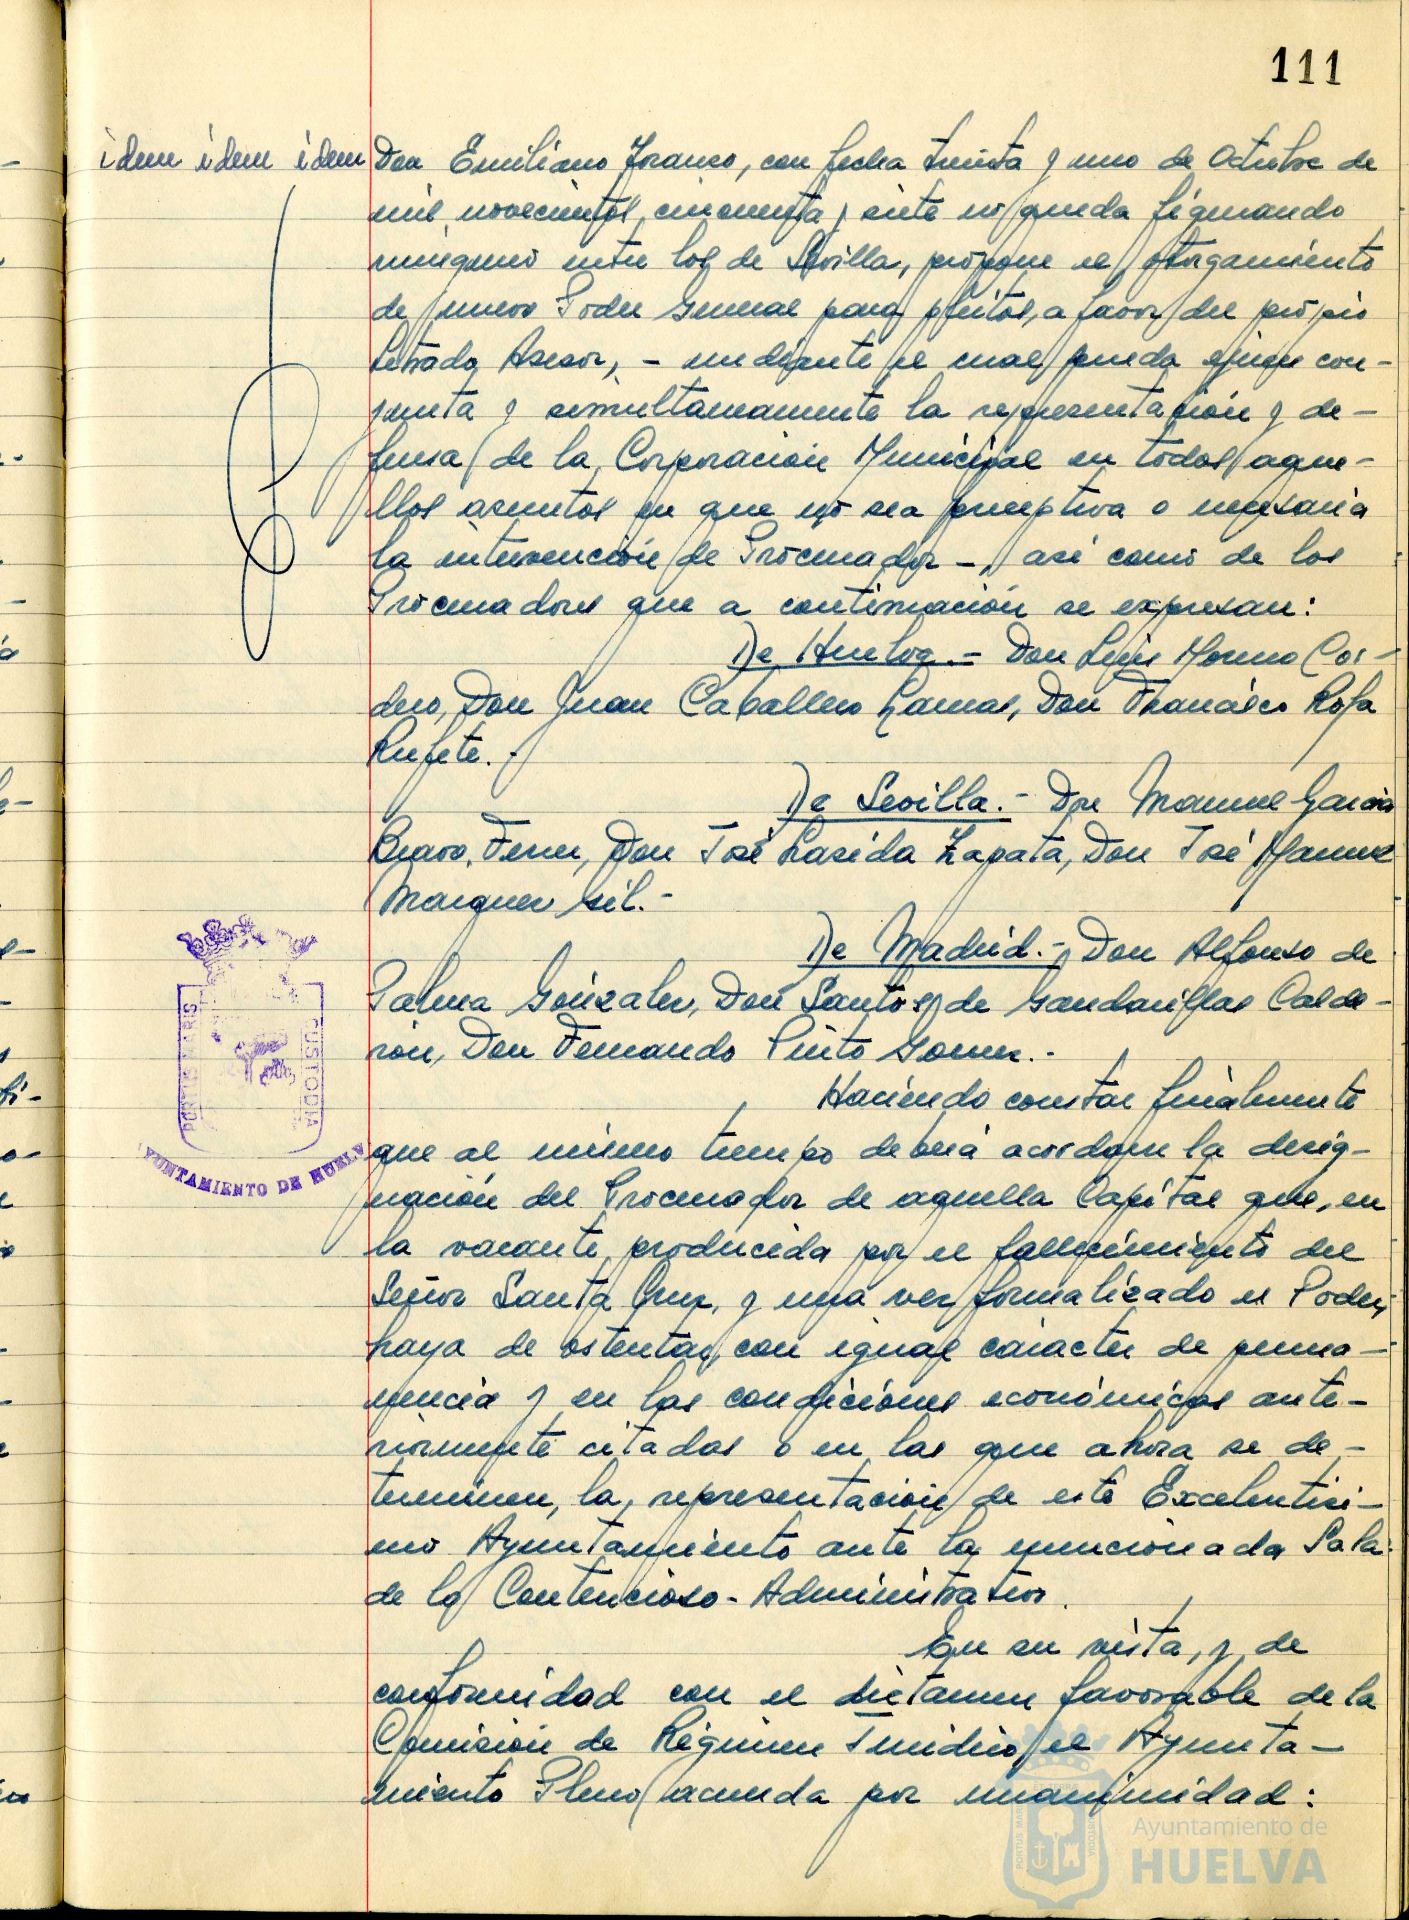 111
idem idem idem
Don Emiliano Franco, con fecha treinta y uno de Octubre de
mil novecientos cincuenta y siete no queda figurando
ninguno entre los de Sevilla, propone el otorgamiento
de nuevo Poder General para pleitos, a favor del propio
Letrado Asesor, - mediante el cual pueda ejercer con-
junta y simultaneamente la representación y de-
fensa de la Corporación Municipal en todos aque-
llos asuntos en que no sea preceptiva o necesaria
la intervención de Procurador -, asi como de los
Procuradores que a continuación se expresan:
De Huelva.- Don Luis Moreno Cor-
dero, Don Juan Caballero Lamas, Don Francisco Rofa
Rufete.-
De Sevilla.- Don Manuel Garcia
Bravo, Ferrer, Don José Lasida Zapata, Don José Manuel
Marquez Gil.-
De Madrid.- Don Alfonso de
Palma González, Don Santos de Gandarillas Calde-
rón, Don Fernando Pinto Gomez.-
Haciendo constar finalmente
que al mismo tiempo deberá acordarse la desig-
nación del Procurador de aquella Capital que, en
la vacante producida por el fallecimiento del
Señor Santa Cruz, y una vez formalizado el Poder,
haya de ostentar, con igual caracter de perma-
nencia y en las condiciones económicas ante-
riormente citadas o en las que ahora se de-
terminen, la representación de este Excelentisi-
mo Ayuntamiento ante la mencionada Sala
de lo Contencioso-Administrativo.
En su vista, y de
conformidad con el dictamen favorable de la
Comisión de Régimen Juridico, el Ayunta-
miento Pleno acuerda por unanimidad:
PORTUS MARIS
CUSTODIA
AYUNTAMIENTO DE HUELVA
Ayuntamiento de
HUELVA